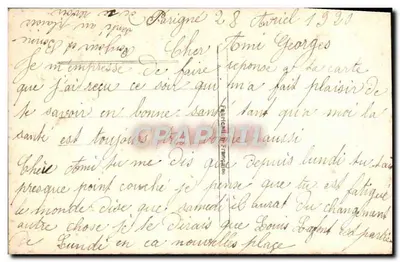 Parigné 28 Avril 1920
Cher Ami Georges
Je m'empresse de faire reponse a ta carte
que j'ai reçu ce soir qui m'a fait plaisir de
te savoir en bonne santé tant qu'a moi la
santé est toujours bonne aussi
Cher Ami tu me dis que depuis lundi tu
presque point couché je pense que tu est fatigué
le monde dise que samedi il aurat du changement
autre chose je te dirais que Louis est partie
de Lundi en ca nouvelles place
CARTE POSTALE